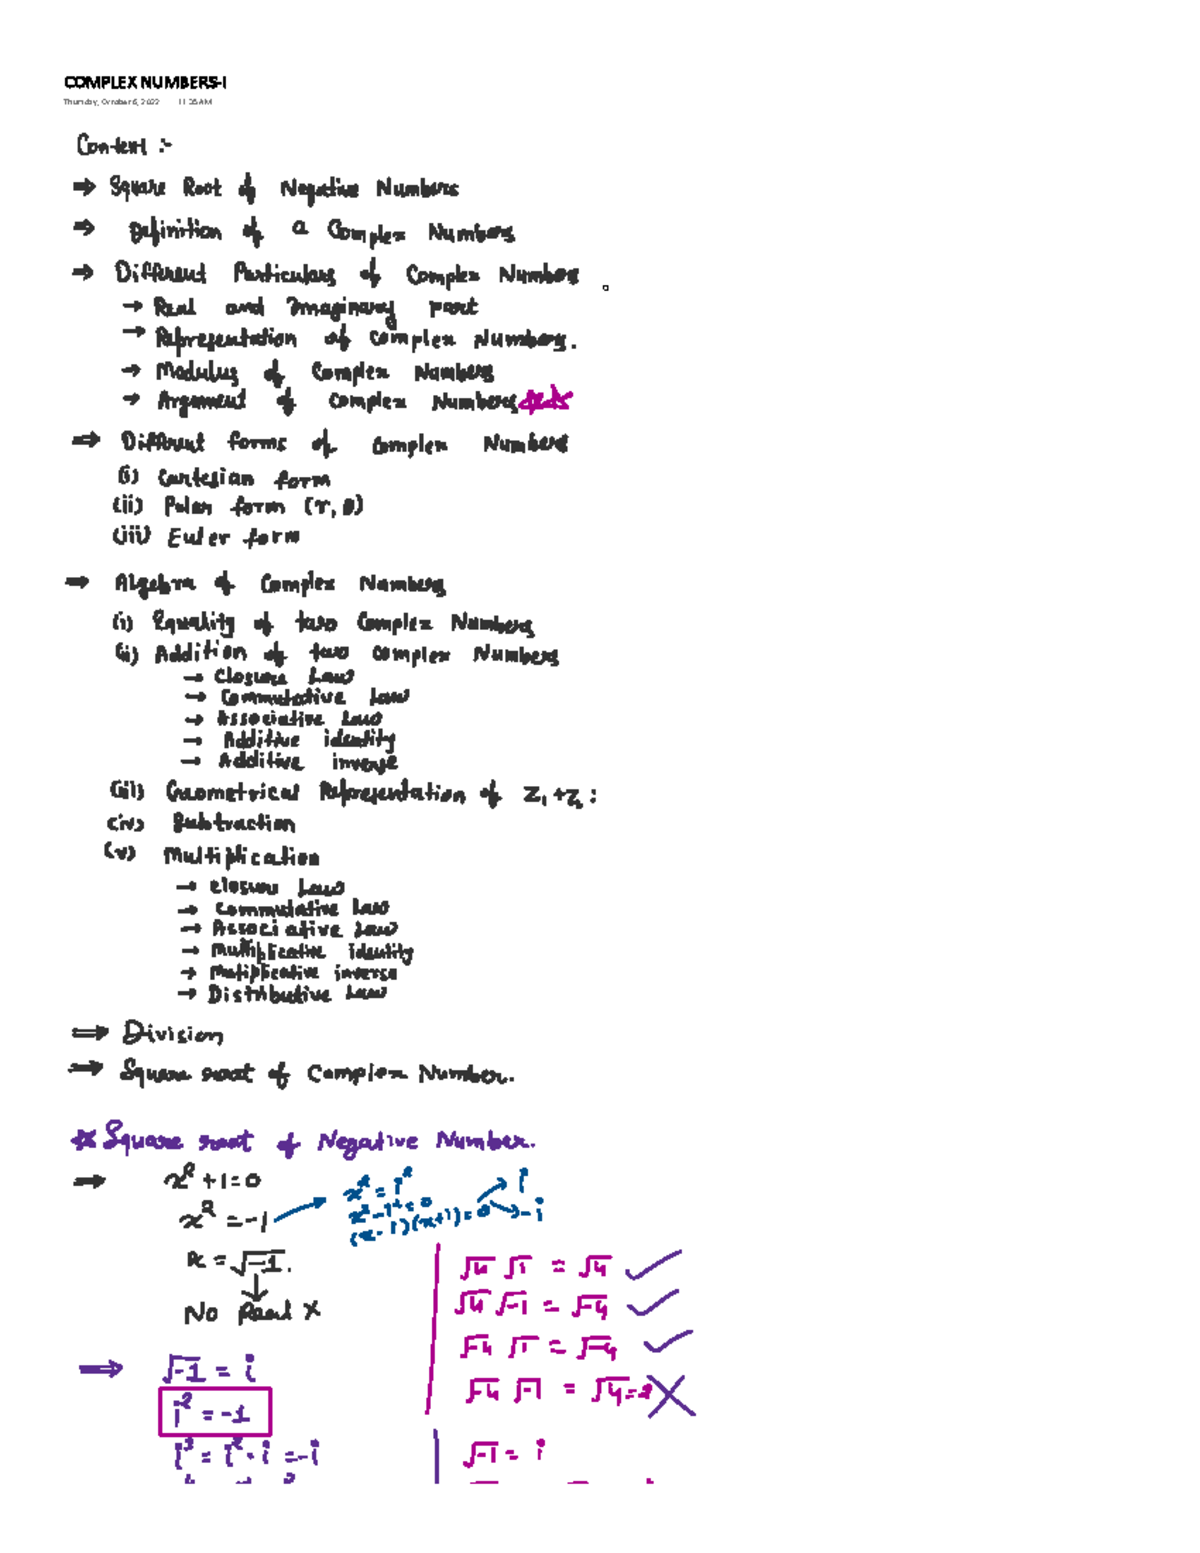 COMPLEX NUMBERS-I
Thursday, October 6, 2022 11:35 AM
Context :-
⇒ Square Root of Negative Numbers
⇒ Definition of a Complex Numbers
⇒ Different Particulars of Complex Numbers
→ Real and Imaginary part
→ Representation of Complex Numbers.
→ Modulus of Complex Numbers
→ Argument of Complex Numbers
⇒ Different forms of Complex Numbers
(i) Cartesian form
(ii) Polar form (r, θ)
(iii) Euler form
⇒ Algebra of Complex Numbers
(i) Equality of two Complex Numbers
(ii) Addition of two Complex Numbers
→ Closure Law
→ Commutative Law
→ Associative Law
→ Additive identity
→ Additive inverse
(iii) Geometrical Representation of Z₁+Z₂ :
(iv) Subtraction
(v) Multiplication
→ Closure Law
→ Commutative Law
→ Associative Law
→ Multiplicative identity
→ Multiplicative inverse
→ Distributive Law
⇒ Division
⇒ Square root of Complex Number.
* Square root of Negative Number.
→ x² + 1 = 0
x² = -1
x² = i²
x² - i² = 0
(x - i)(x + i) = 0
i
-i
x = √-1.
No Real X
√4 √1 = √4 ✓
√4 √-1 = √-4 ✓
√-4 √1 = √-4 ✓
√-4 √-1 = √4 = 2 ✗
⇒ √-1 = i
i² = -1
i³ = i² · i = -i
√-1 = i